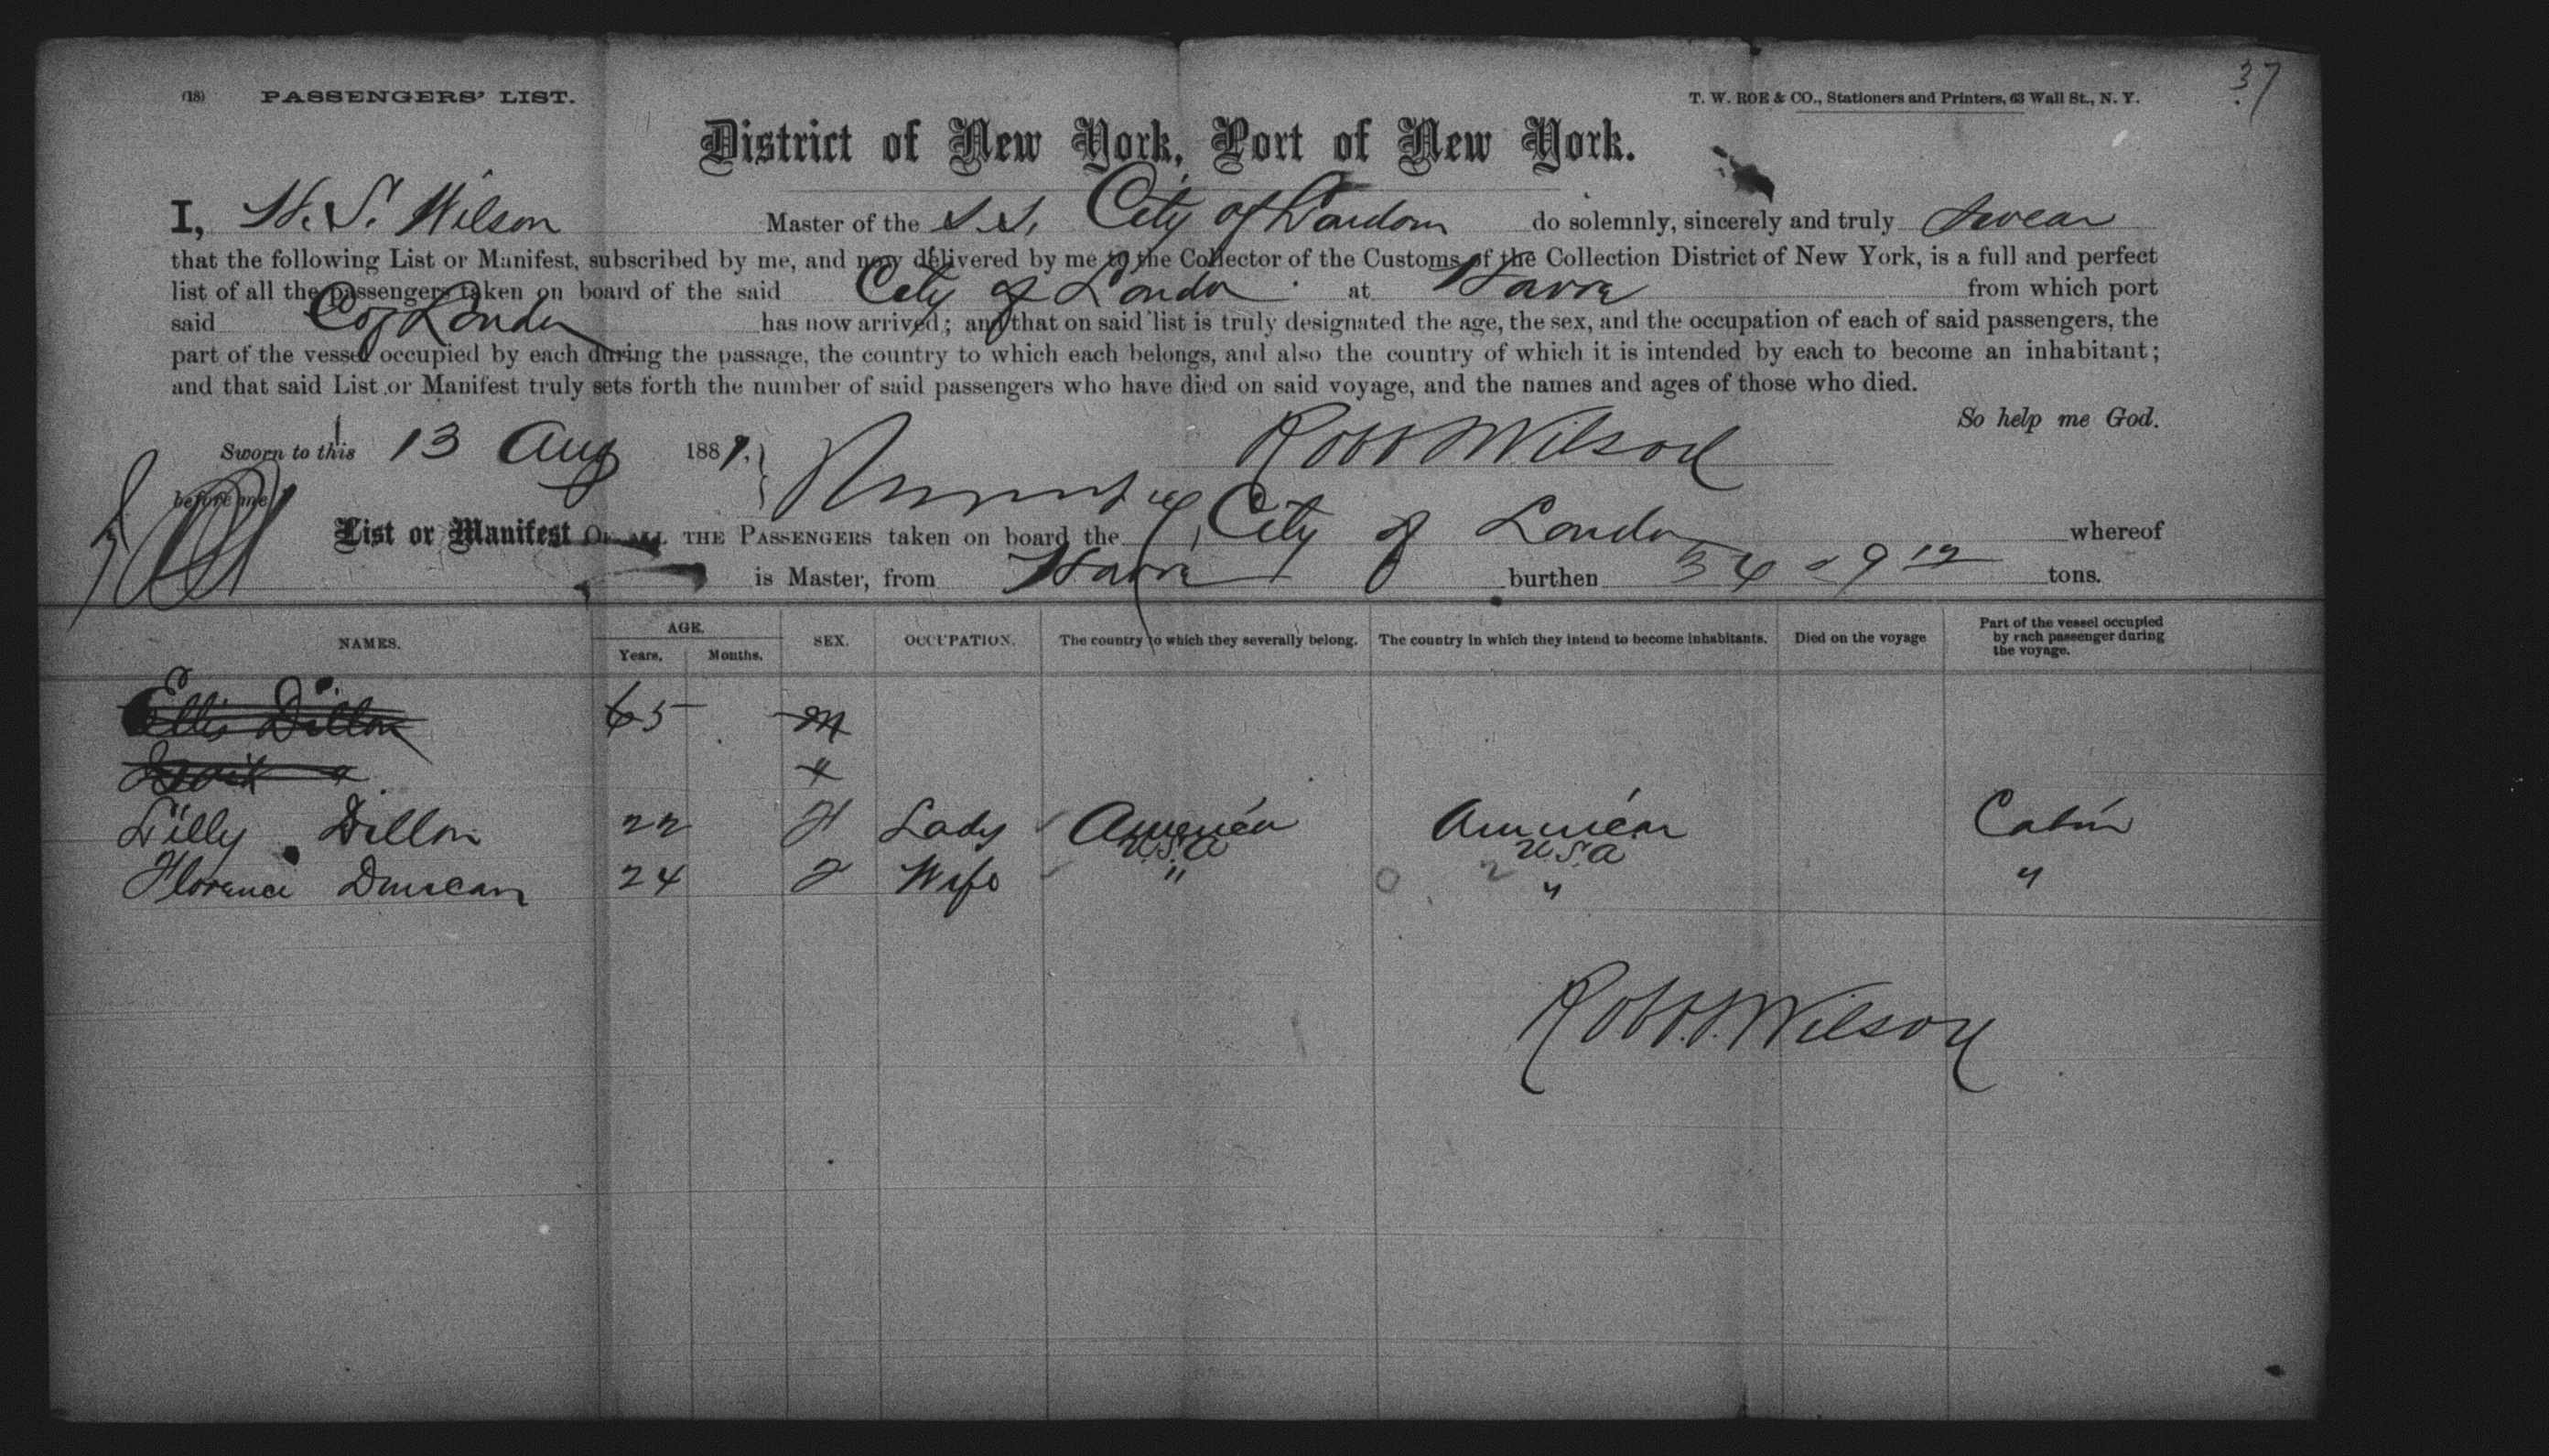 37
(18) PASSENGERS' LIST. T. W. ROE & CO., Stationers and Printers, 63 Wall St., N. Y.
District of New York, Port of New York.
I, H. S. Wilson Master of the S.S. City of London do solemnly, sincerely and truly swear
that the following List or Manifest, subscribed by me, and now delivered by me to the Collector of the Customs of the Collection District of New York, is a full and perfect
list of all the passengers taken on board of the said City of London at Havre from which port
said C of London has now arrived; and that on said list is truly designated the age, the sex, and the occupation of each of said passengers, the
part of the vessel occupied by each during the passage, the country to which each belongs, and also the country of which it is intended by each to become an inhabitant;
and that said List or Manifest truly sets forth the number of said passengers who have died on said voyage, and the names and ages of those who died.
So help me God.
Sworn to this 13 Aug 188 Wilson
before me
List or Manifest OF ALL THE PASSENGERS taken on board the City of London whereof
is Master, from Havre burthen tons.
NAMES. AGE. Years. Months. SEX. OCCUPATION. The country to which they severally belong. The country in which they intend to become inhabitants. Died on the voyage Part of the vessel occupied by each passenger during the voyage.
Ellis Dillon 65 M
"
Lilly Dillon 22 F Lady America America Cabin
USA USA
Florence Duncan 24 F Wife " " "
Wilson